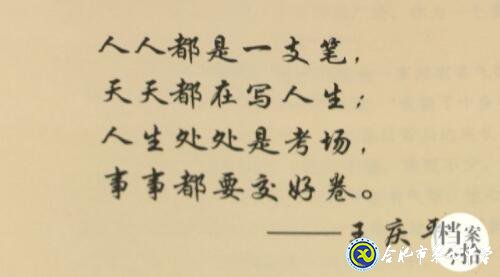 人人都是一支笔，
天天都在写人生；
人生处处是考场，
事事都要交好卷。
——王庆
档案
今拾
合肥市